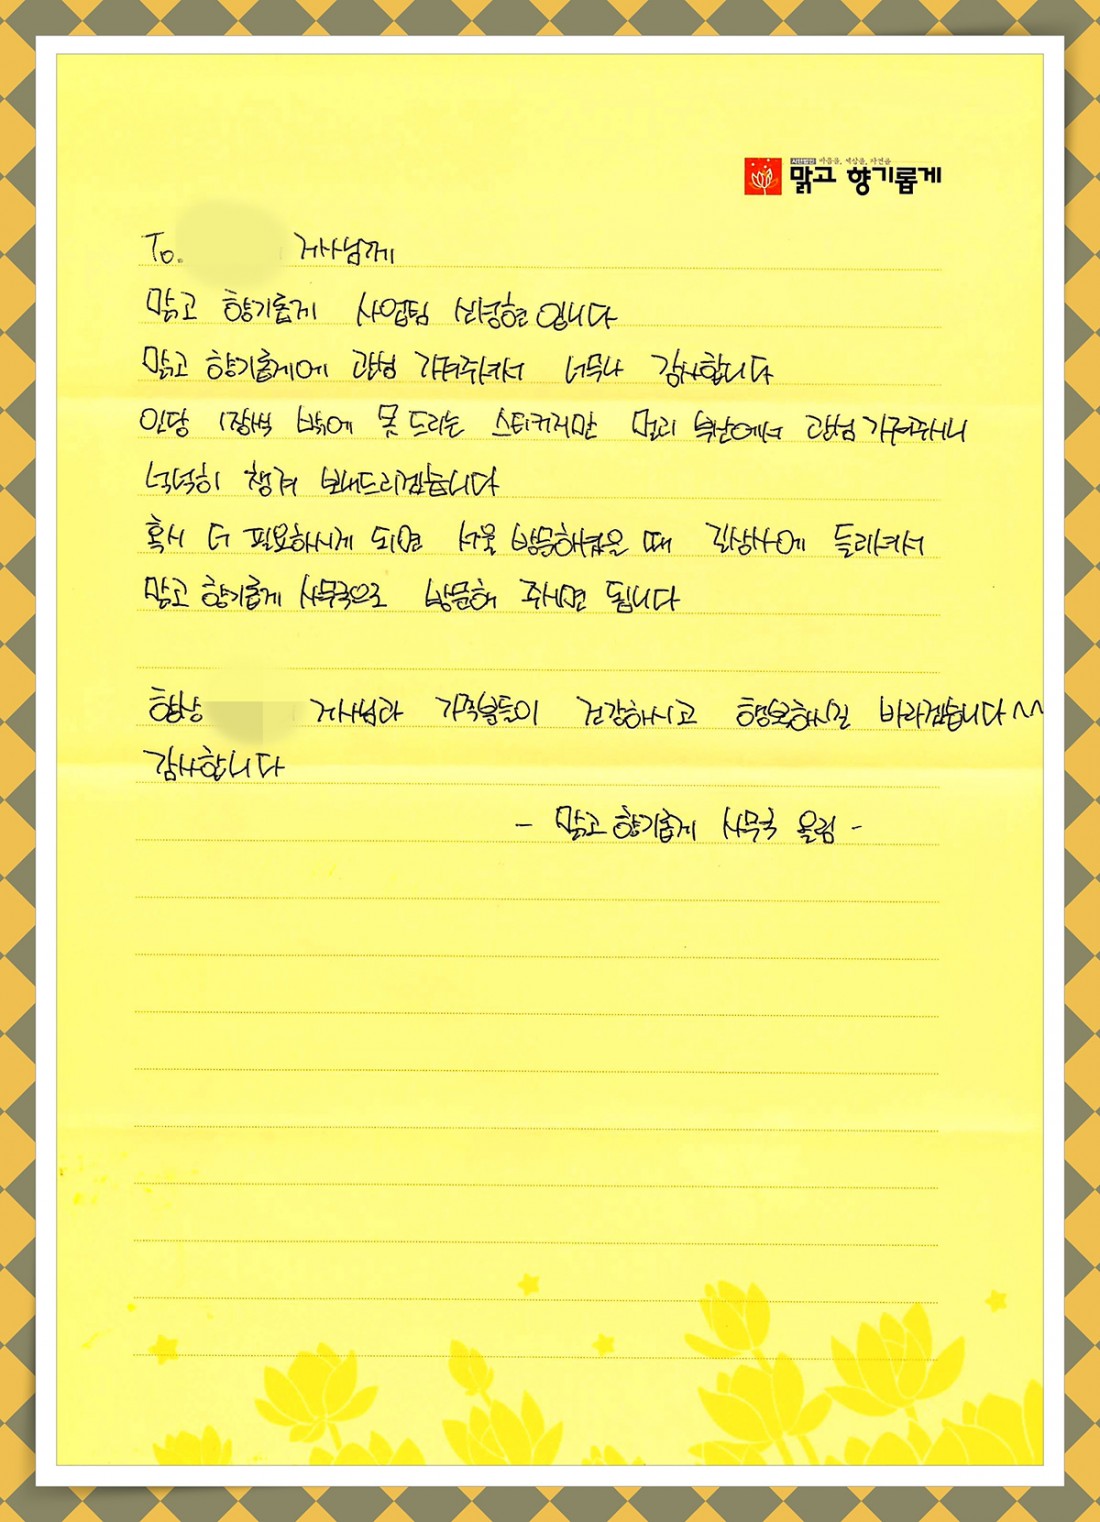 사단법인 마음을, 세상을, 자연을
맑고 향기롭게
To. 거사님께
맑고 향기롭게 사업팀 신성현입니다
맑고 향기롭게에 관심 가져주셔서 너무나 감사합니다
인당 1장씩 밖에 못 드리는 스티커지만 멀리 부산에서 관심 가져주시니
넉넉히 챙겨 보내드리겠습니다
혹시 더 필요하시게 되면 서울 방문하셨을 때 길상사에 들리셔서
맑고 향기롭게 사무국으로 방문해 주시면 됩니다
항상 거사님과 가족분들이 건강하시고 행복하시길 바라겠습니다^^
감사합니다
- 맑고 향기롭게 사무국 올림 -